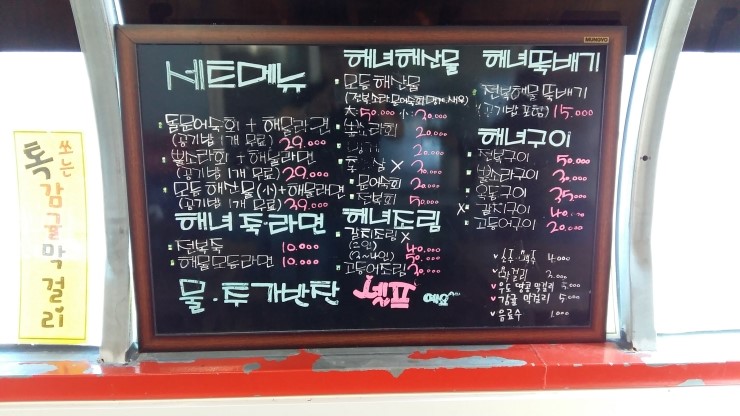 MUNGYO
톡
쏘는
감귤막걸리
세트메뉴
돌문어숙회 + 해물라면
(공기밥 1개 무료) 29.000
뿔소라회 + 해물라면
(공기밥 1개 무료) 29.000
모둠해산물(小)+해물라면
(공기밥 1개 무료) 39.000
해녀죽·라면
전복죽 10.000
해물모둠라면 10.000
물·투가반찬
해녀해산물
모둠해산물
大: 50.000 小: 20.000
뿔소라회 20.000
20.000
X
문어숙회 20.000
전복회 50.000
해녀조림
갈치조림 X
(2인) 40.000
(3~4인) 50.000
고등어조림
셀프 예요^^
해녀뚝배기
전복해물뚝배기
(공기밥 포함) 15.000
해녀구이
전복구이 50.000
뿔소라구이 30.000
옥돔구이 35.000
X 갈치구이
고등어구이 20.000
소주·맥주 4.000
막걸리 3.000
우도 땅콩 막걸리 5.000
감귤 막걸리 5.000
음료수 1.000